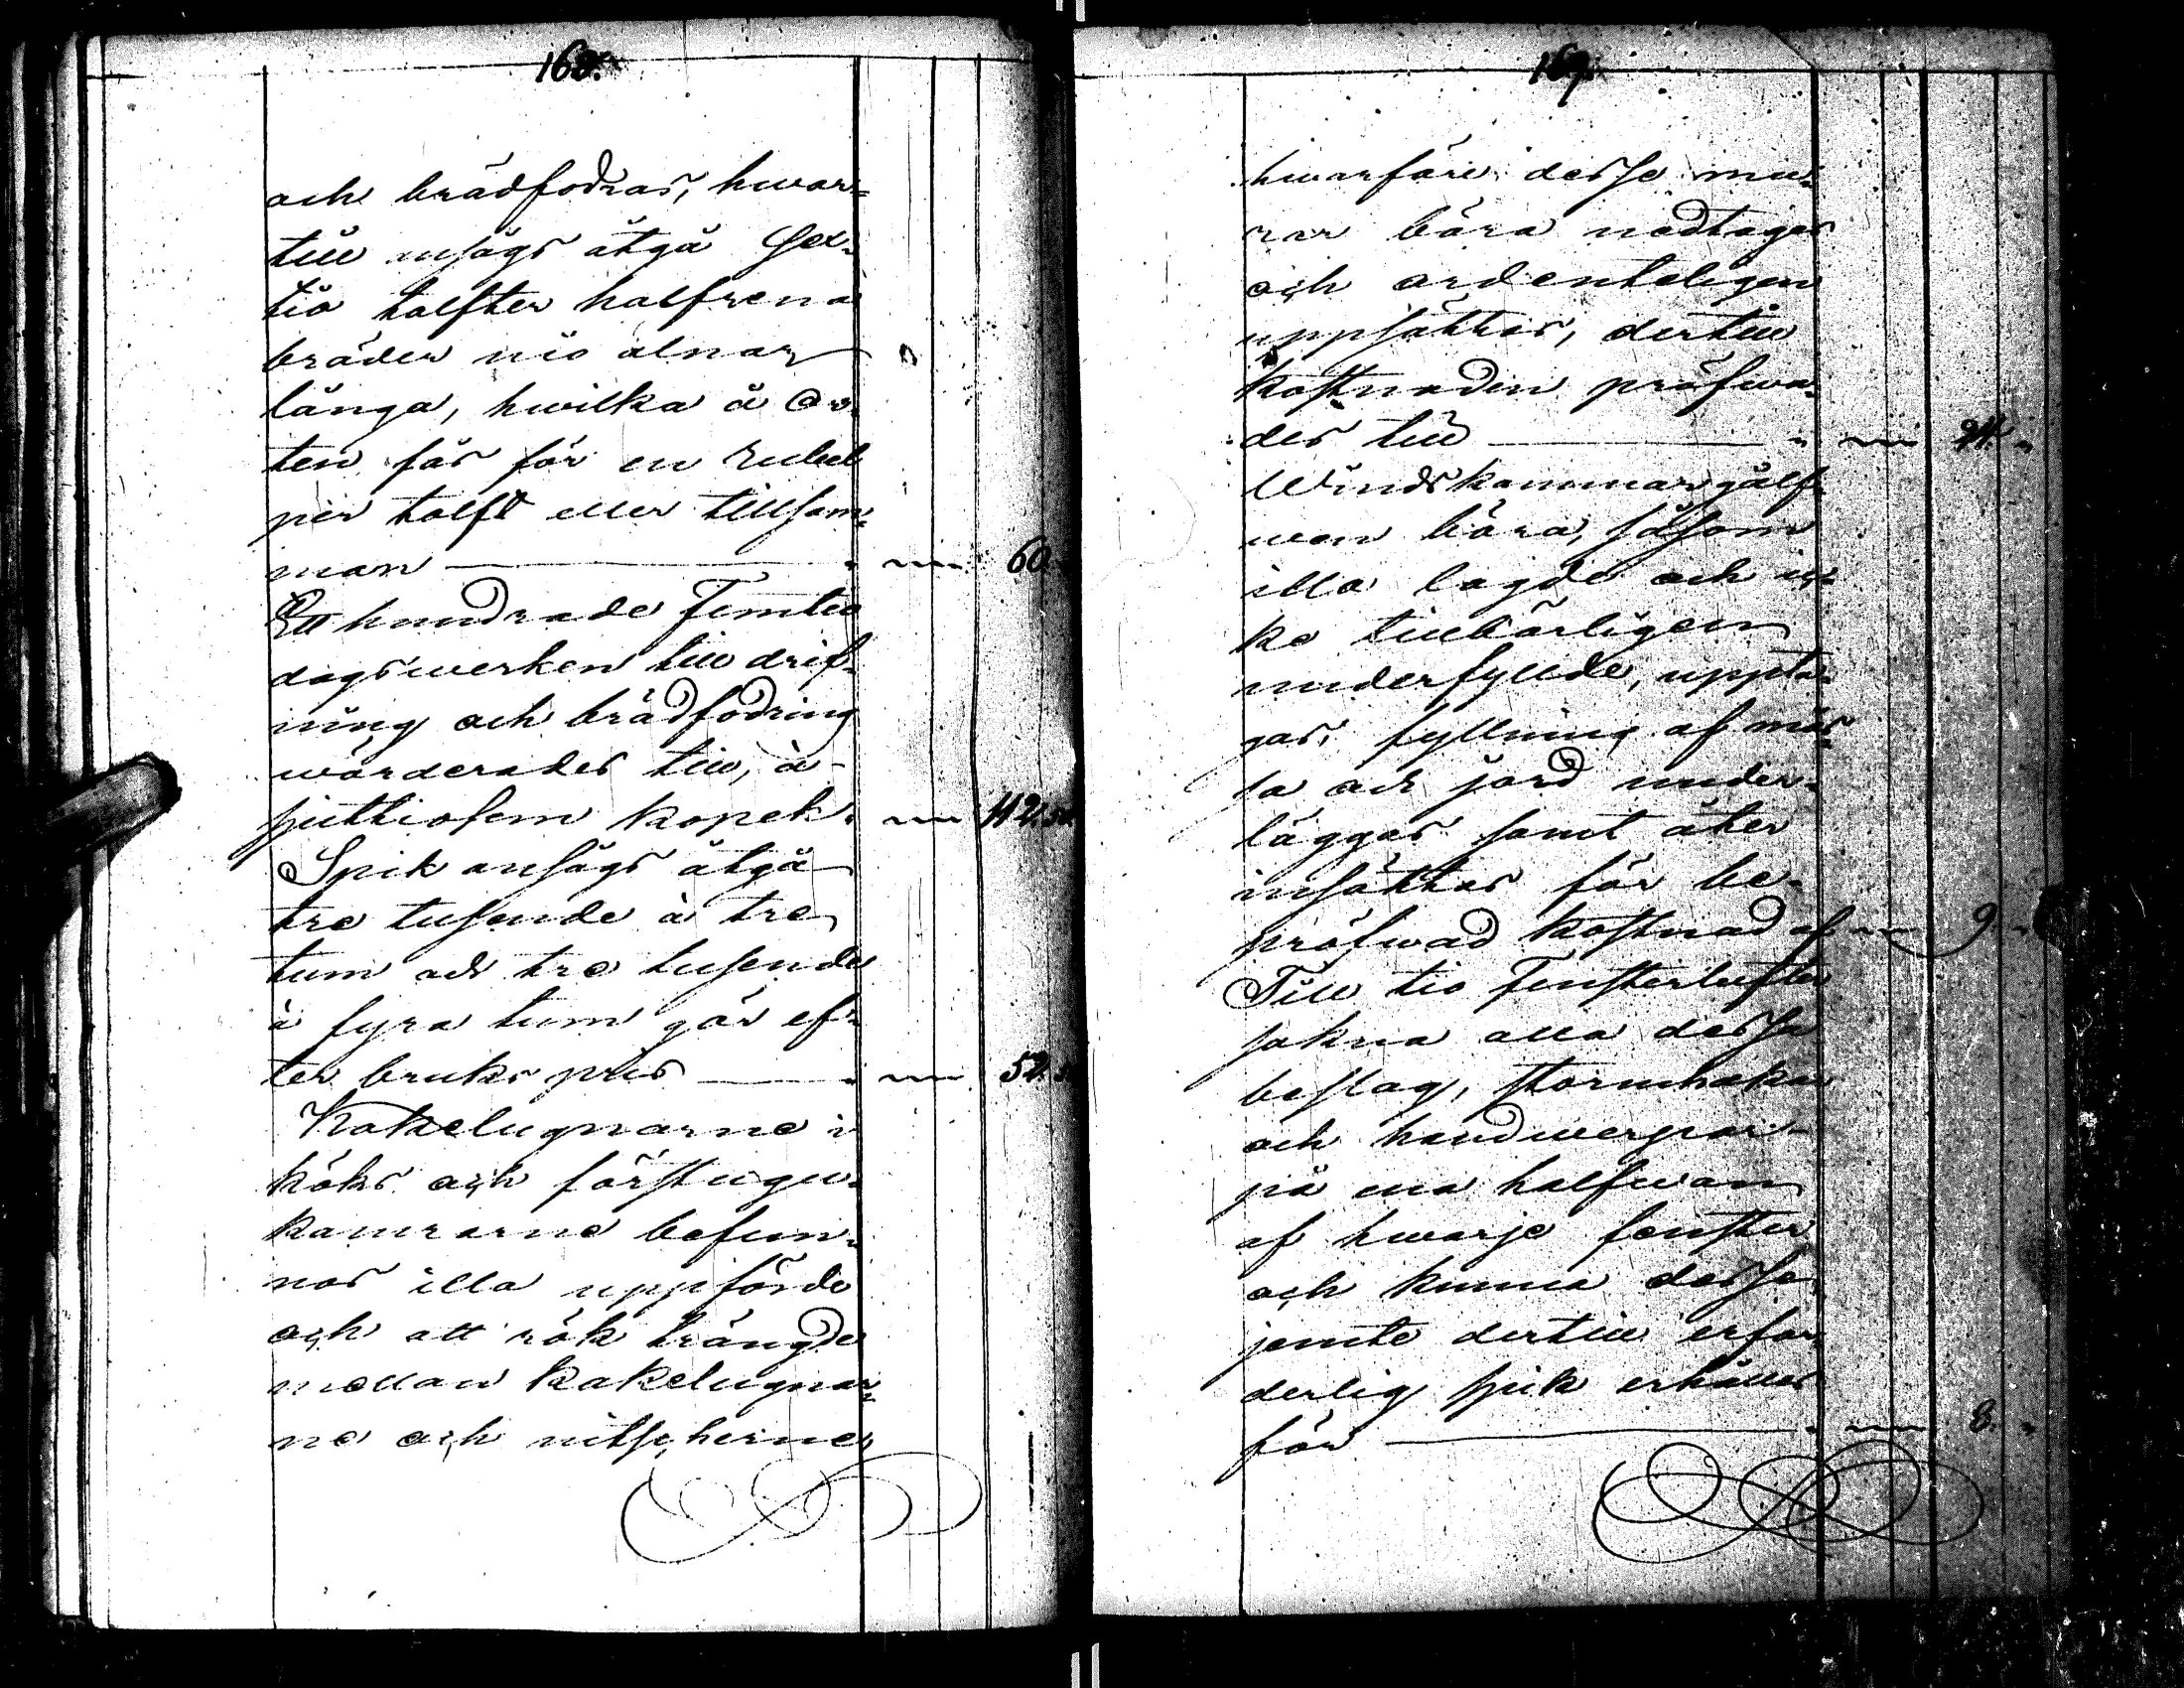 168.
och brädfodras, hwar-
till ansågs åtgå Sex-
tio tolfter halfrena
bräder nio alnar
långa, hwilka å Or-
ten fås för en rubel
per tolft eller tillsam-
man — " 60.
Ett hundrade Femtio
dagswerken till drif-
ning och brädfodring
wärderades till, à
sjuttiofem kopek. 112.50.
Spik ansågs åtgå
tre tusende à tre
tum och tre tusende
à fyra tum gör ef-
ter bruks pris — " 52.50
Kakelugnarne i
köks och förstugu-
kamrarne befun-
nos illa uppförde
och att rök trängde
mellan kakelugnar-
ne och nitscherne
169.
hwarföre desse mu-
rar böra nedtagas
och ordenteligen
uppsättas, dertill
kostnaden pröfwa-
des till — " 24. "
Windskammargålf-
wen böra, såsom
illa lagde och ic-
ke tillbörligen
underfyllde, uppta-
gas, fyllning af mås-
sa och jord under-
läggas samt åter
insättas för be-
pröfwad kostnad af 9. "
Till tio Fensterlufter
sakna alla dessa
beslag, stormhakar
och handwergrar
på ena halfwan
af hwarje fenster
och kunna dessa
jemte dertill erfor-
derlig spik erhållas
för — " 8. "